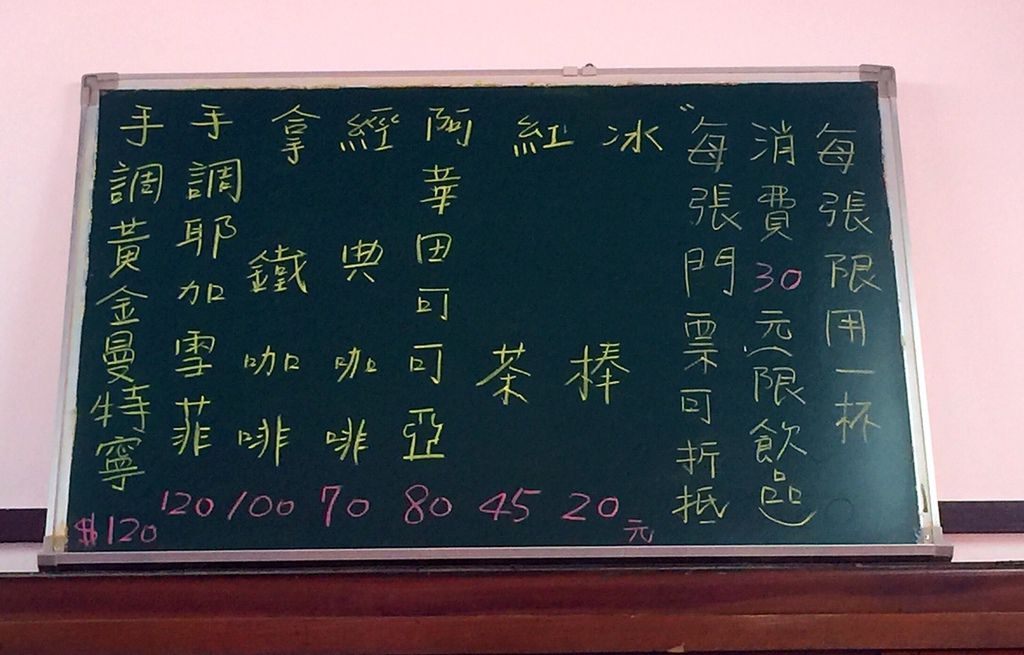 每張限用一杯
消費30元(限飲品)
"每張門票可折抵
冰棒 20元
紅茶 45
阿華田可可亞 80
經典咖啡 70
拿鐵咖啡 100
手調耶加雪菲 120
手調黃金曼特寧 $120